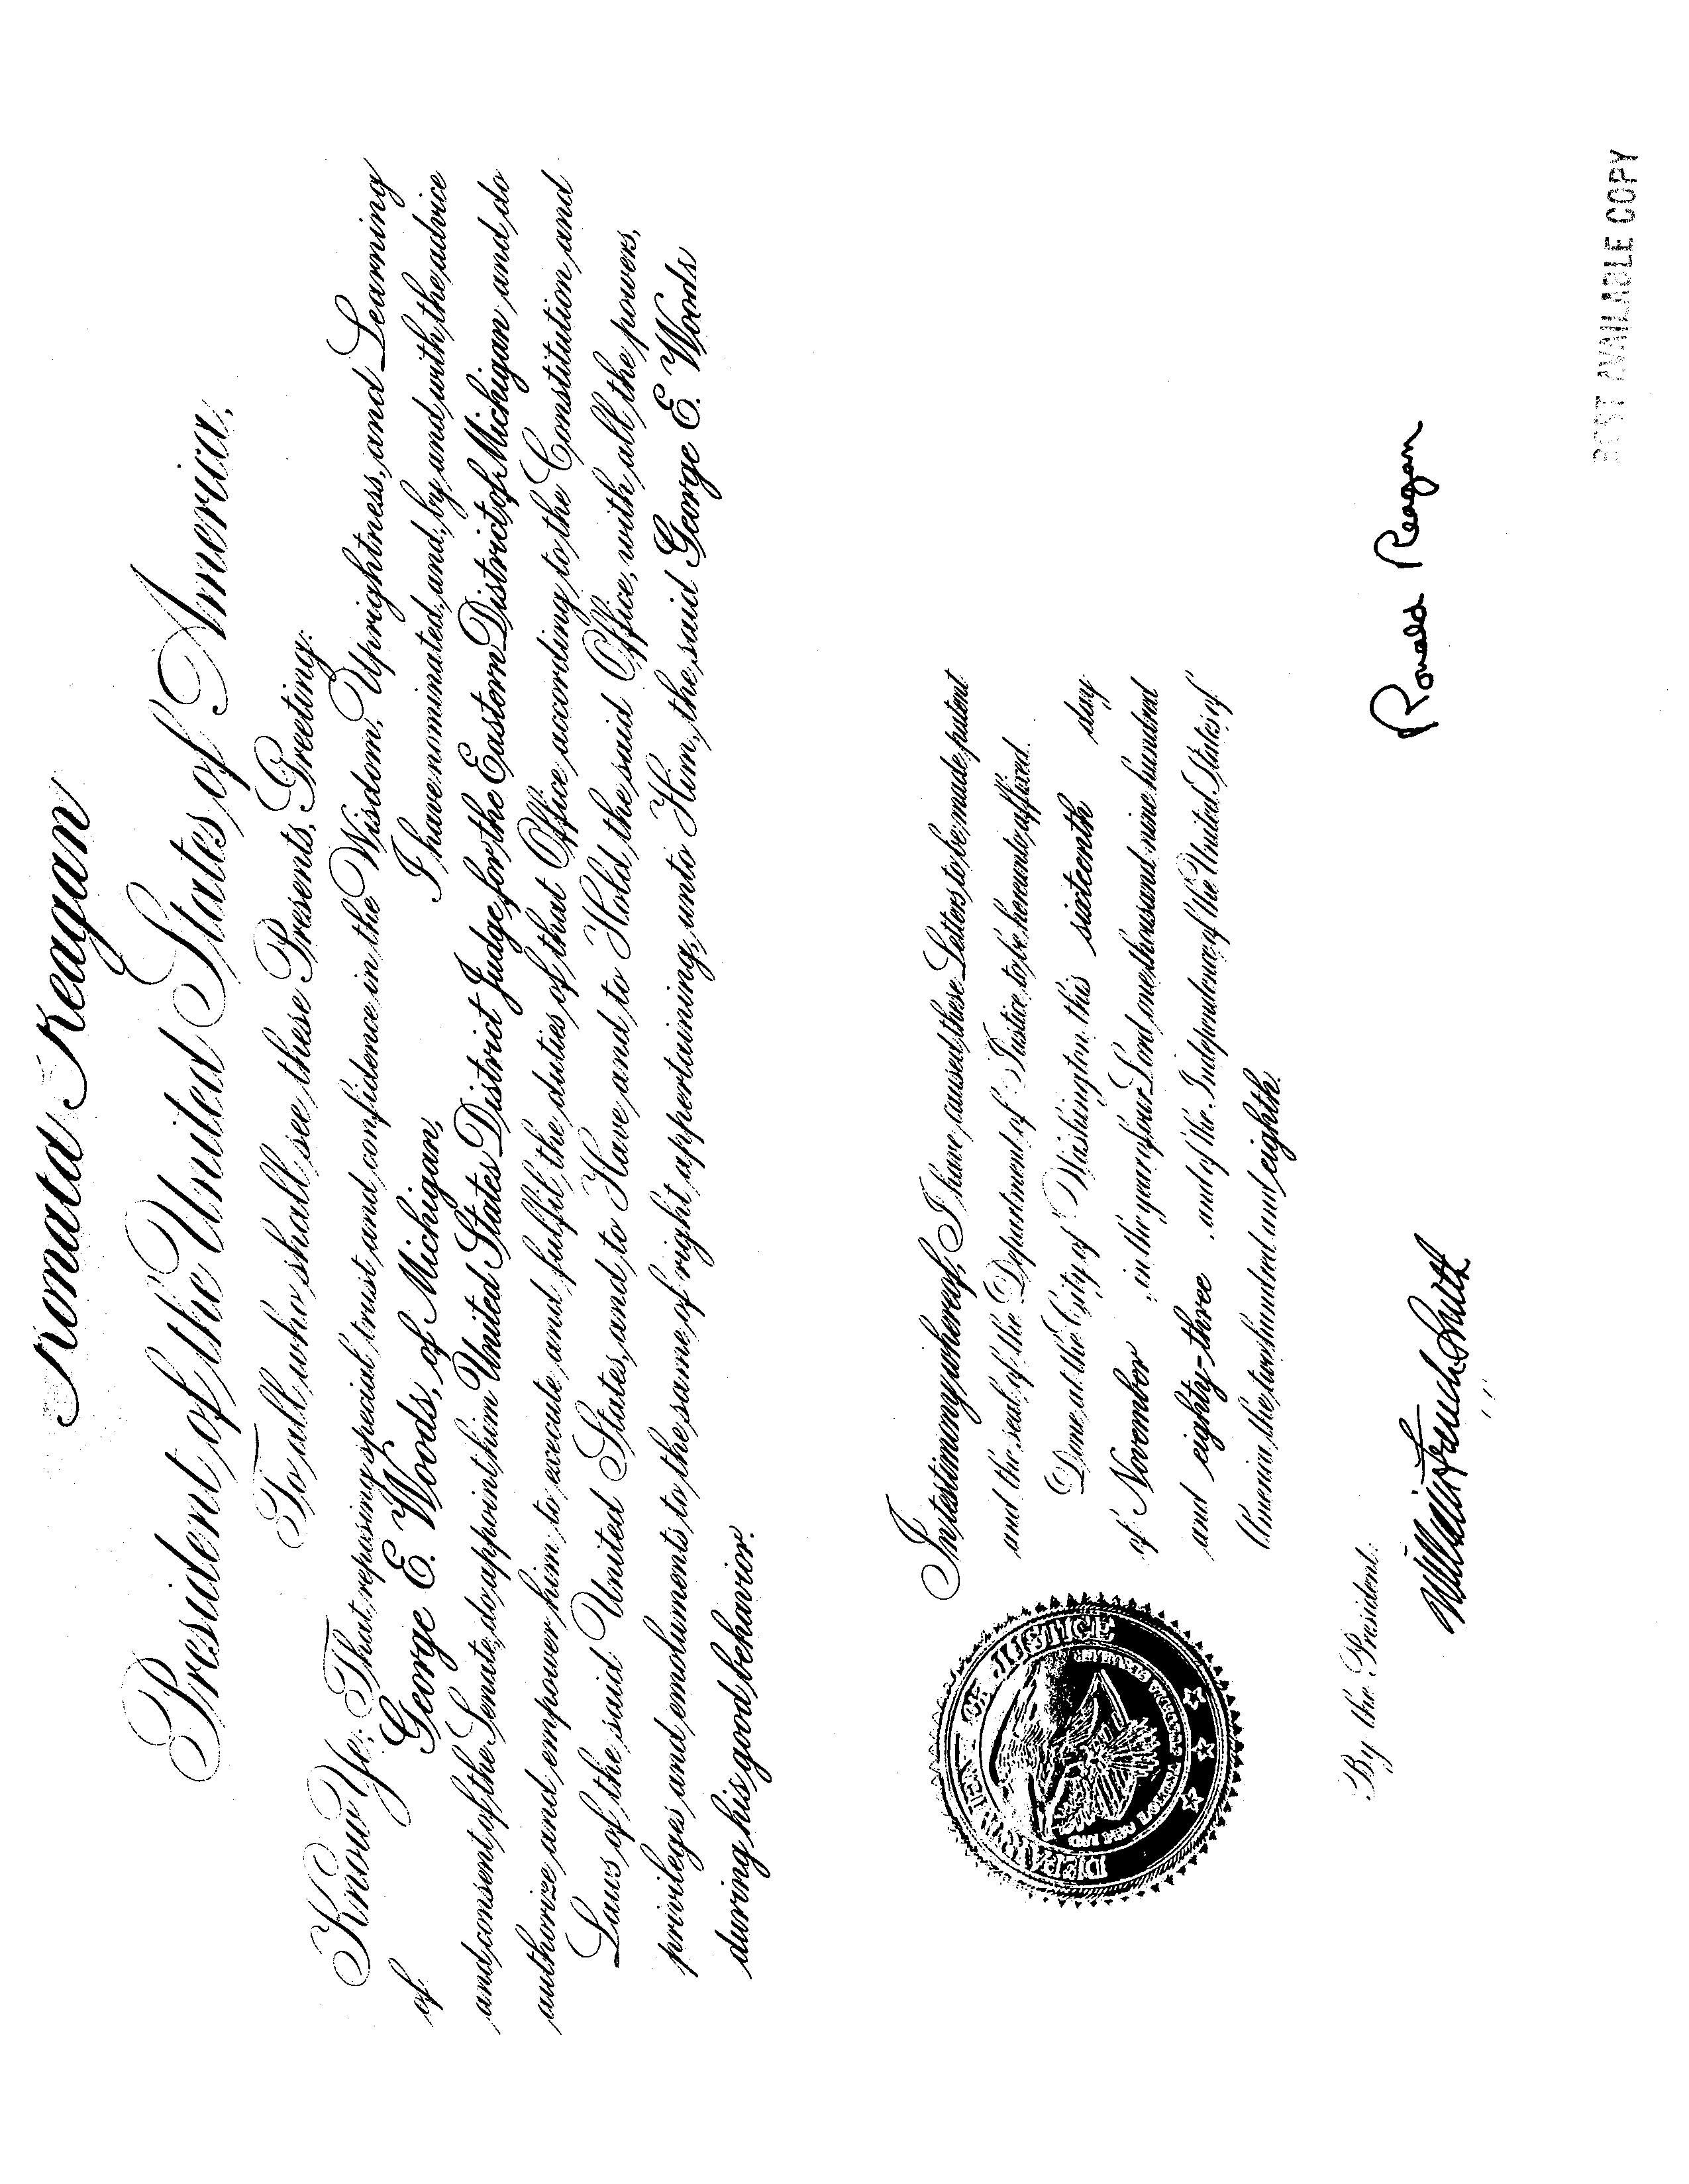 Ronald Reagan
President of the United States of America,
To all who shall see these Presents, Greeting:
Know Ye; That reposing special trust and confidence in the Wisdom, Uprightness, and Learning
of George E. Woods, of Michigan, I have nominated, and, by and with the advice
and consent of the Senate, do appoint him United States District Judge for the Eastern District of Michigan and do
authorize and empower him to execute and fulfil the duties of that Office according to the Constitution and
Laws of the said United States, and to Have and to Hold the said Office, with all the powers,
privileges and emoluments to the same of right appertaining, unto Him, the said George E. Woods
during his good behavior.
In testimony whereof, I have caused these Letters to be made patent
and the seal of the Department of Justice to be hereunto affixed.
Done at the City of Washington this sixteenth day
of November in the year of our Lord one thousand nine hundred
and eighty-three, and of the Independence of the United States of
America the two hundred and eighth.
DEPARTMENT OF JUSTICE
By the President:
Ronald Reagan
William French Smith
BEST AVAILABLE COPY